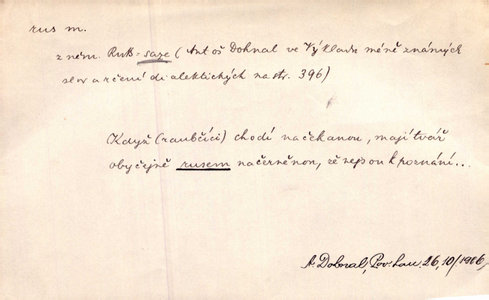 rus m.
z něm. Ruß = saze (Antoš Dohnal ve Výkladu méně známých
slov a rčení dialektických na str. 396)
Když (raubčíci) chodí na čekanou, mají tvář
obyčejně rusem načerněnou, že nejsou k poznání...
A. Dohnal, Pov. Lau. 26, 10/1906,